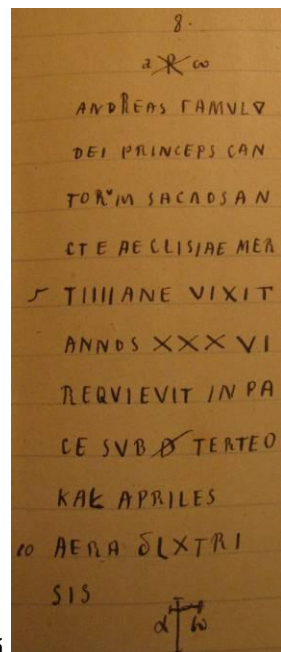 8.
α ☧ ω
ANDREAS FAMVLV
DEI PRINCEPS CAN
TORVM SACROSAN
CTE AECLISIAE MER
5 TIIIIANE VIXIT
ANNOS XXXVI
REQVIEVIT IN PA
CE SVB D TERTEO
KAL APRILES
10 AERA δLXTRI
SIS
α ω